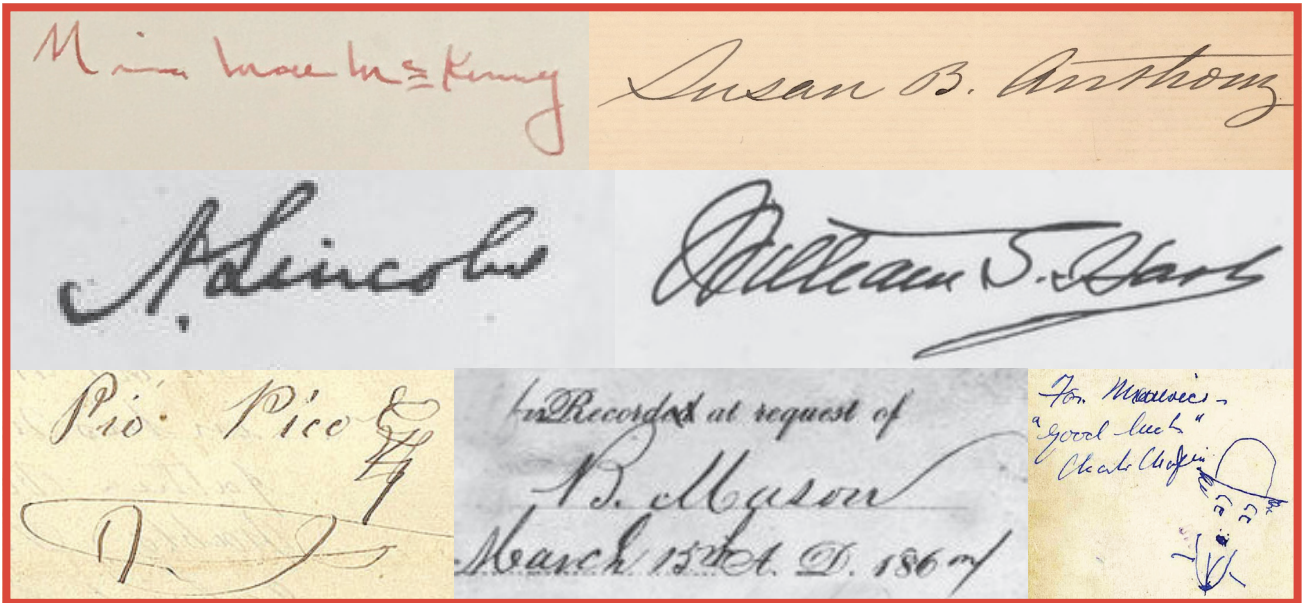 Nina Mae McKinney
Susan B. Anthony
A. Lincoln
William S. Hart
Pio Pico
Recorded at request of
B. Mason
March 15th A. D. 1867
For Maurice -
"good luck"
Charlie Chaplin